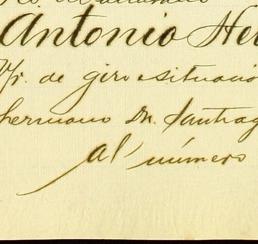 Antonio He
Vr. de giro e situació
hermano Dn. Santiag
al número